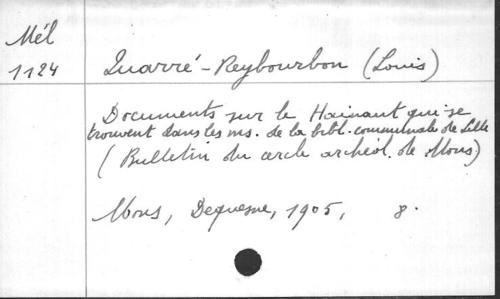 Mél
1124
Quarré-Reybourbon (Louis)
Documents sur le Hainaut qui se
trouvent dans les ms. de la bibl. communale de Lille
(Bulletin du cercle archéol. de Mons)
Mons, Dequesne, 1905, 8.